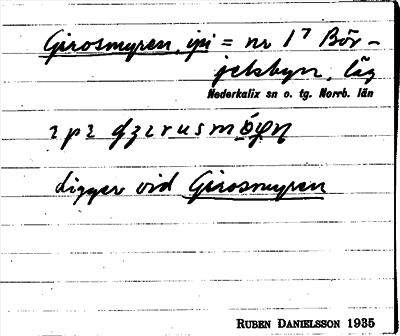 Girosmyren, ipi = nr 1⁷ Bör-
jelsbyn, läg
Nederkalix sn o. tg. Norrb. län
ligger vid Girosmyren
RUBEN DANIELSSON 1935